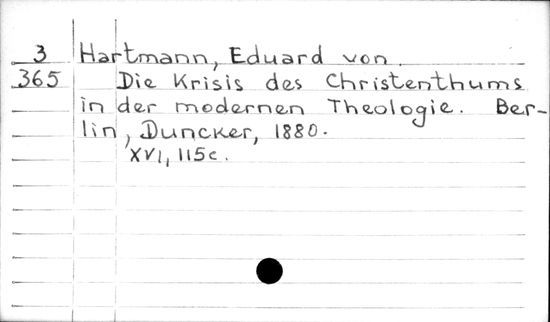 3 Hartmann, Eduard von.
365 Die Krisis des Christenthums
in der modernen Theologie. Ber-
lin, Duncker, 1880.
XVI, 115c.